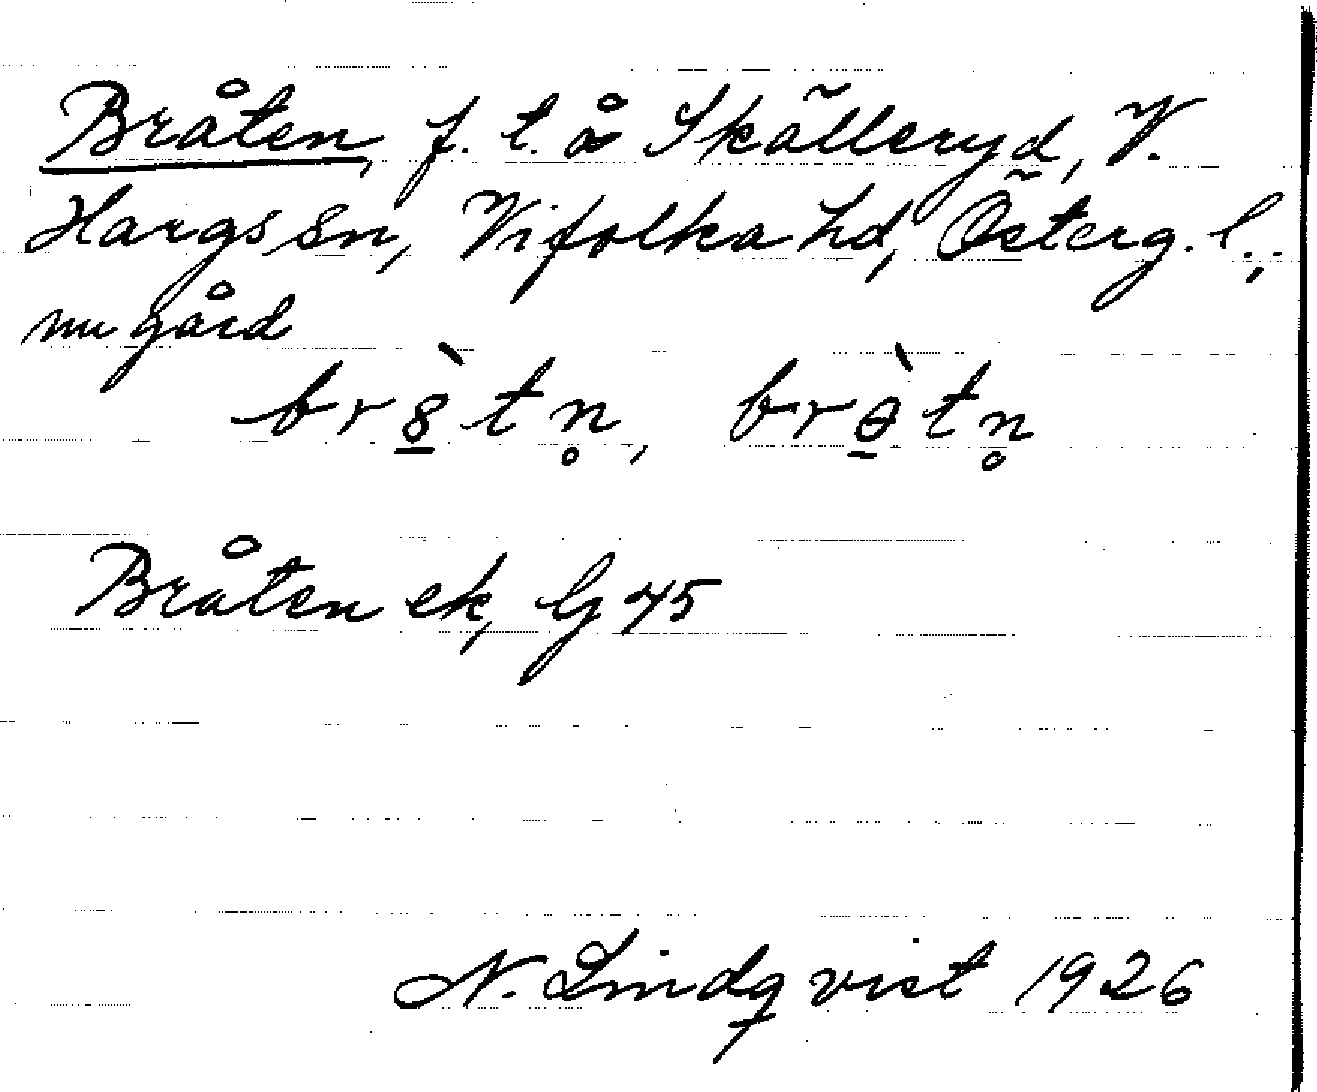 Bråten, f. t. å Skälleryd, V.
Hargs sn, Vifolka hd, Österg. l.,
nu gård
br8̲̀tn̥, brө̲̀tn̥
Bråten ek, G 45
N. Lindqvist 1926